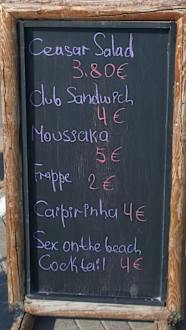 Ceasar Salad
3.80€
Club Sandwich
4€
Moussaka
5€
Frappe 2€
Caipirinha 4€
Sex on the beach
Cocktail 4€